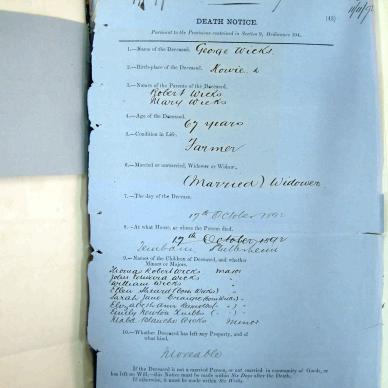 (43)
DEATH NOTICE.
Pursuant to the Provisions contained in Section 9, Ordinance 104.
1.—Name of the Deceased. George Wicks
2.—Birth-place of the Deceased. Kowie
3.—Names of the Parents of the Deceased.
Robert Wicks
Mary Wicks
4.—Age of the Deceased.
67 years
5.—Condition in Life.
Farmer
6.—Married or unmarried, Widower or Widow.
(Married) Widower
7.—The day of the Decease.
17th October 1892
8.—At what House, or where the Person died.
17th October 1892
9.—Names of the Children of Deceased, and whether
Minors or Majors.
Robert Wicks major
John Wicks "
William Wicks "
Ellen (born Wicks) "
Sarah Jane (born Wicks) "
Elizabeth Ann "
Emily "
Blanche Wicks minor
10.—Whether Deceased has left any Property, and of
what kind.
Moveable
If the Deceased is not a married Person, or not married in community of Goods, or
has left no Will,—this Notice must be made within Six Days after the Death.
If otherwise, it must be made within Six Weeks.